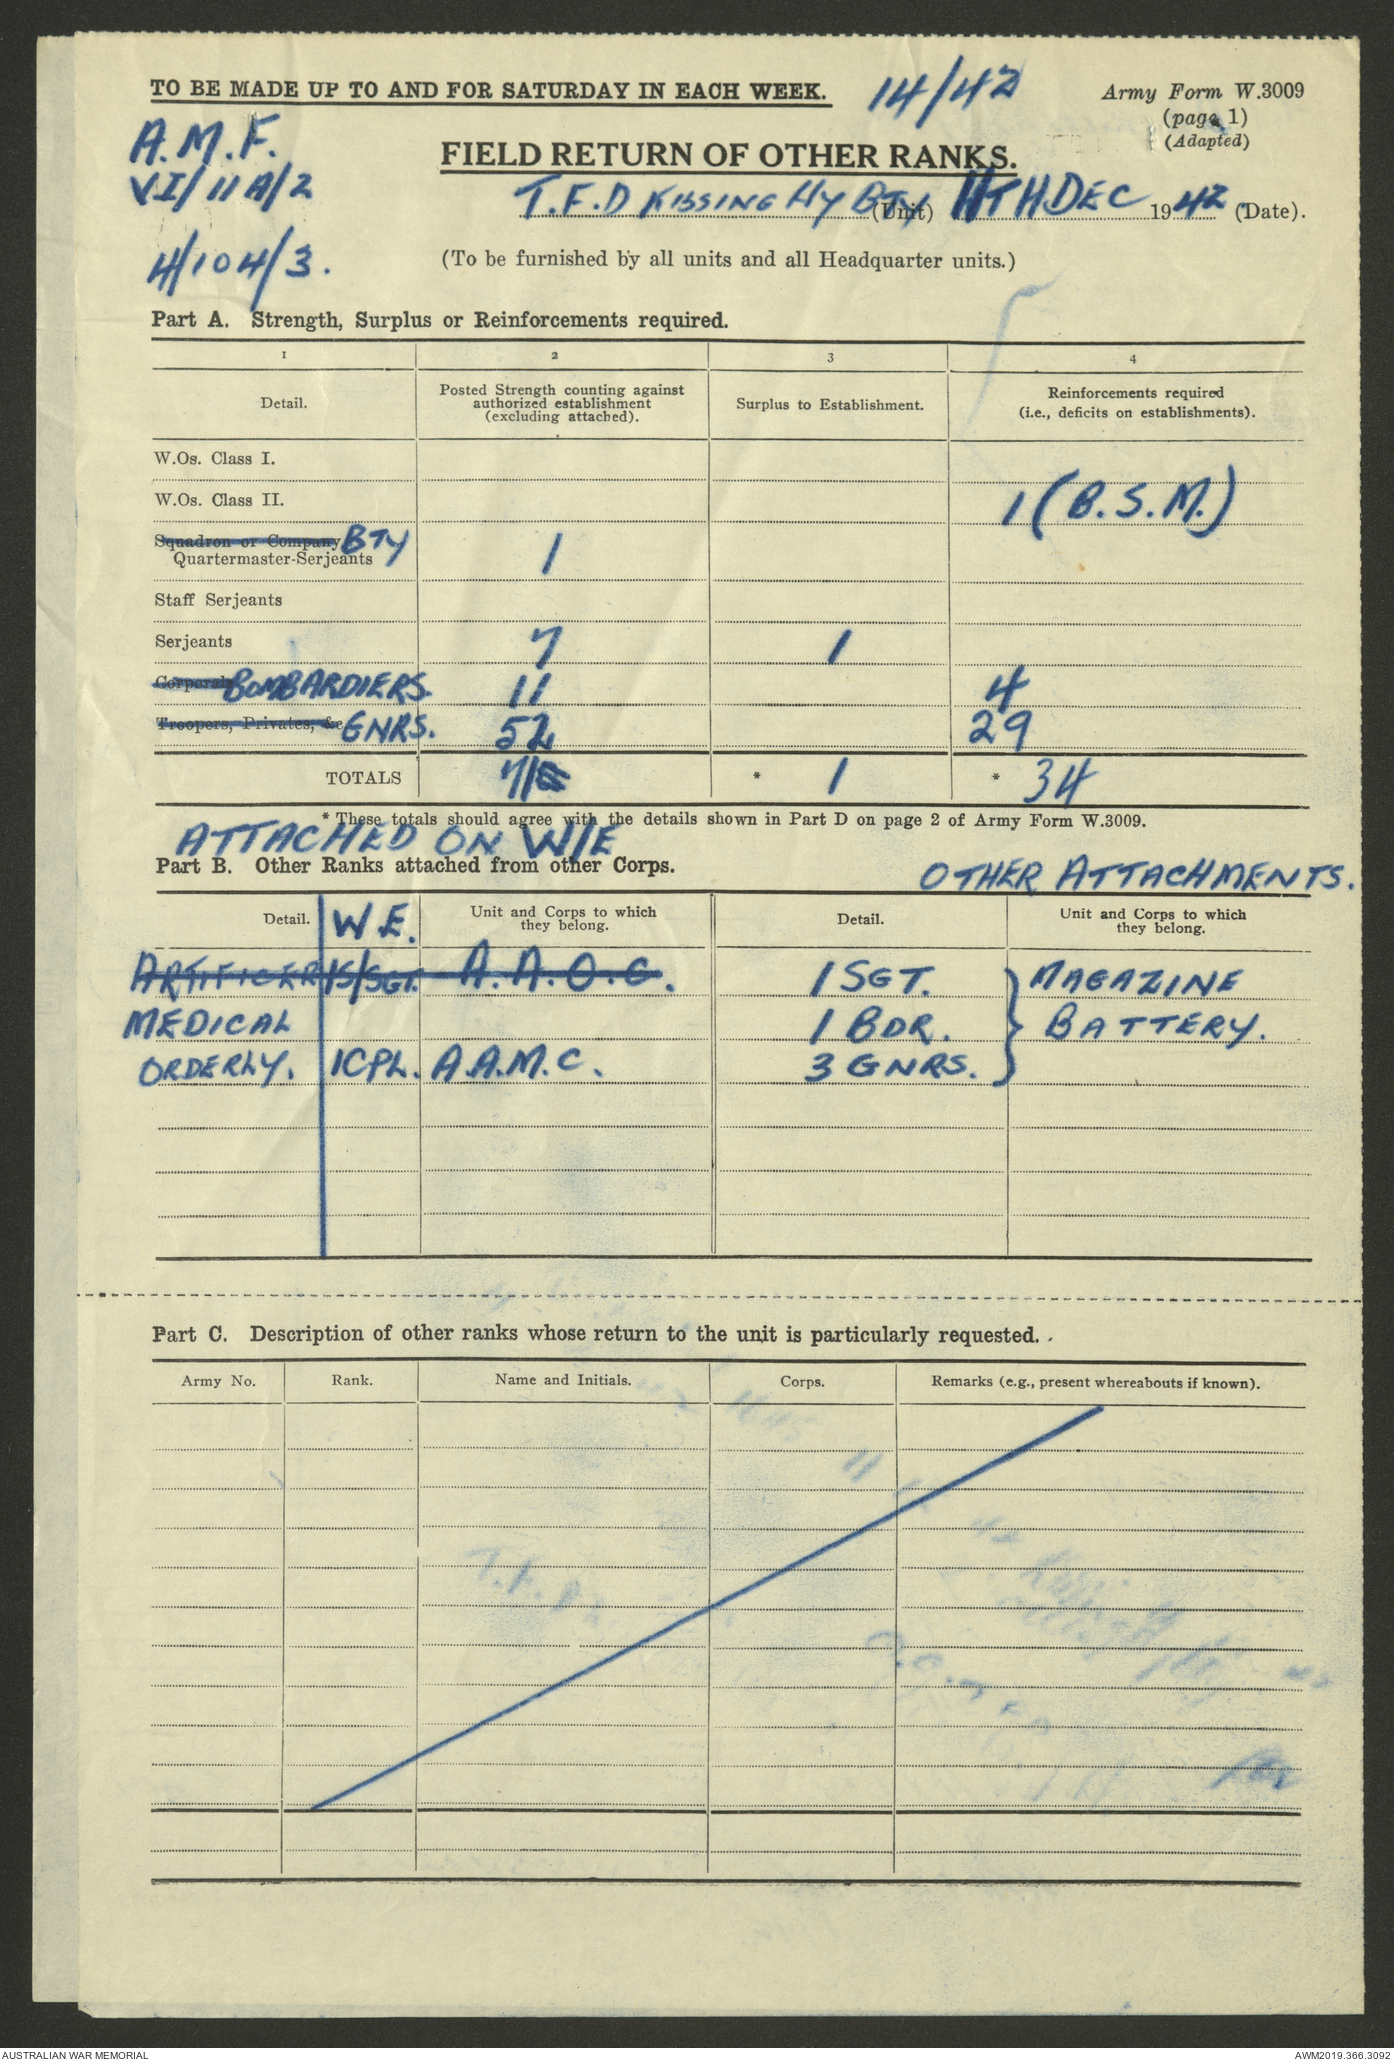 TO BE MADE UP TO AND FOR SATURDAY IN EACH WEEK. 14/42 Army Form W.3009
(page 1)
(Adapted)
A.M.F.
VI/11A/2
4/104/3.
FIELD RETURN OF OTHER RANKS.
T.F.D KISSING HY BTY (Unit) 11TH DEC 1942 (Date).
(To be furnished by all units and all Headquarter units.)
Part A. Strength, Surplus or Reinforcements required.
1 2 3 4
Detail. Posted Strength counting against authorized establishment (excluding attached). Surplus to Establishment. Reinforcements required (i.e., deficits on establishments).
W.Os. Class I.
W.Os. Class II. 1 (B.S.M.)
Squadron or Company BTY
Quartermaster-Serjeants 1
Staff Serjeants
Serjeants 7 1
Corporals BOMBARDIERS. 11 4
Troopers, Privates, &c GNRS. 52 29
TOTALS 71 * 1 * 34
* These totals should agree with the details shown in Part D on page 2 of Army Form W.3009.
ATTACHED ON W/E
Part B. Other Ranks attached from other Corps. OTHER ATTACHMENTS.
Detail. W.E. Unit and Corps to which they belong. Detail. Unit and Corps to which they belong.
ARTIFICER 1S/SGT. A.A.O.C. 1 SGT. } MAGAZINE
MEDICAL 1 BDR. BATTERY.
ORDERLY. 1CPL. A.A.M.C. 3 GNRS.
Part C. Description of other ranks whose return to the unit is particularly requested.
Army No. Rank. Name and Initials. Corps. Remarks (e.g., present whereabouts if known).
AUSTRALIAN WAR MEMORIAL AWM2019.366.3092